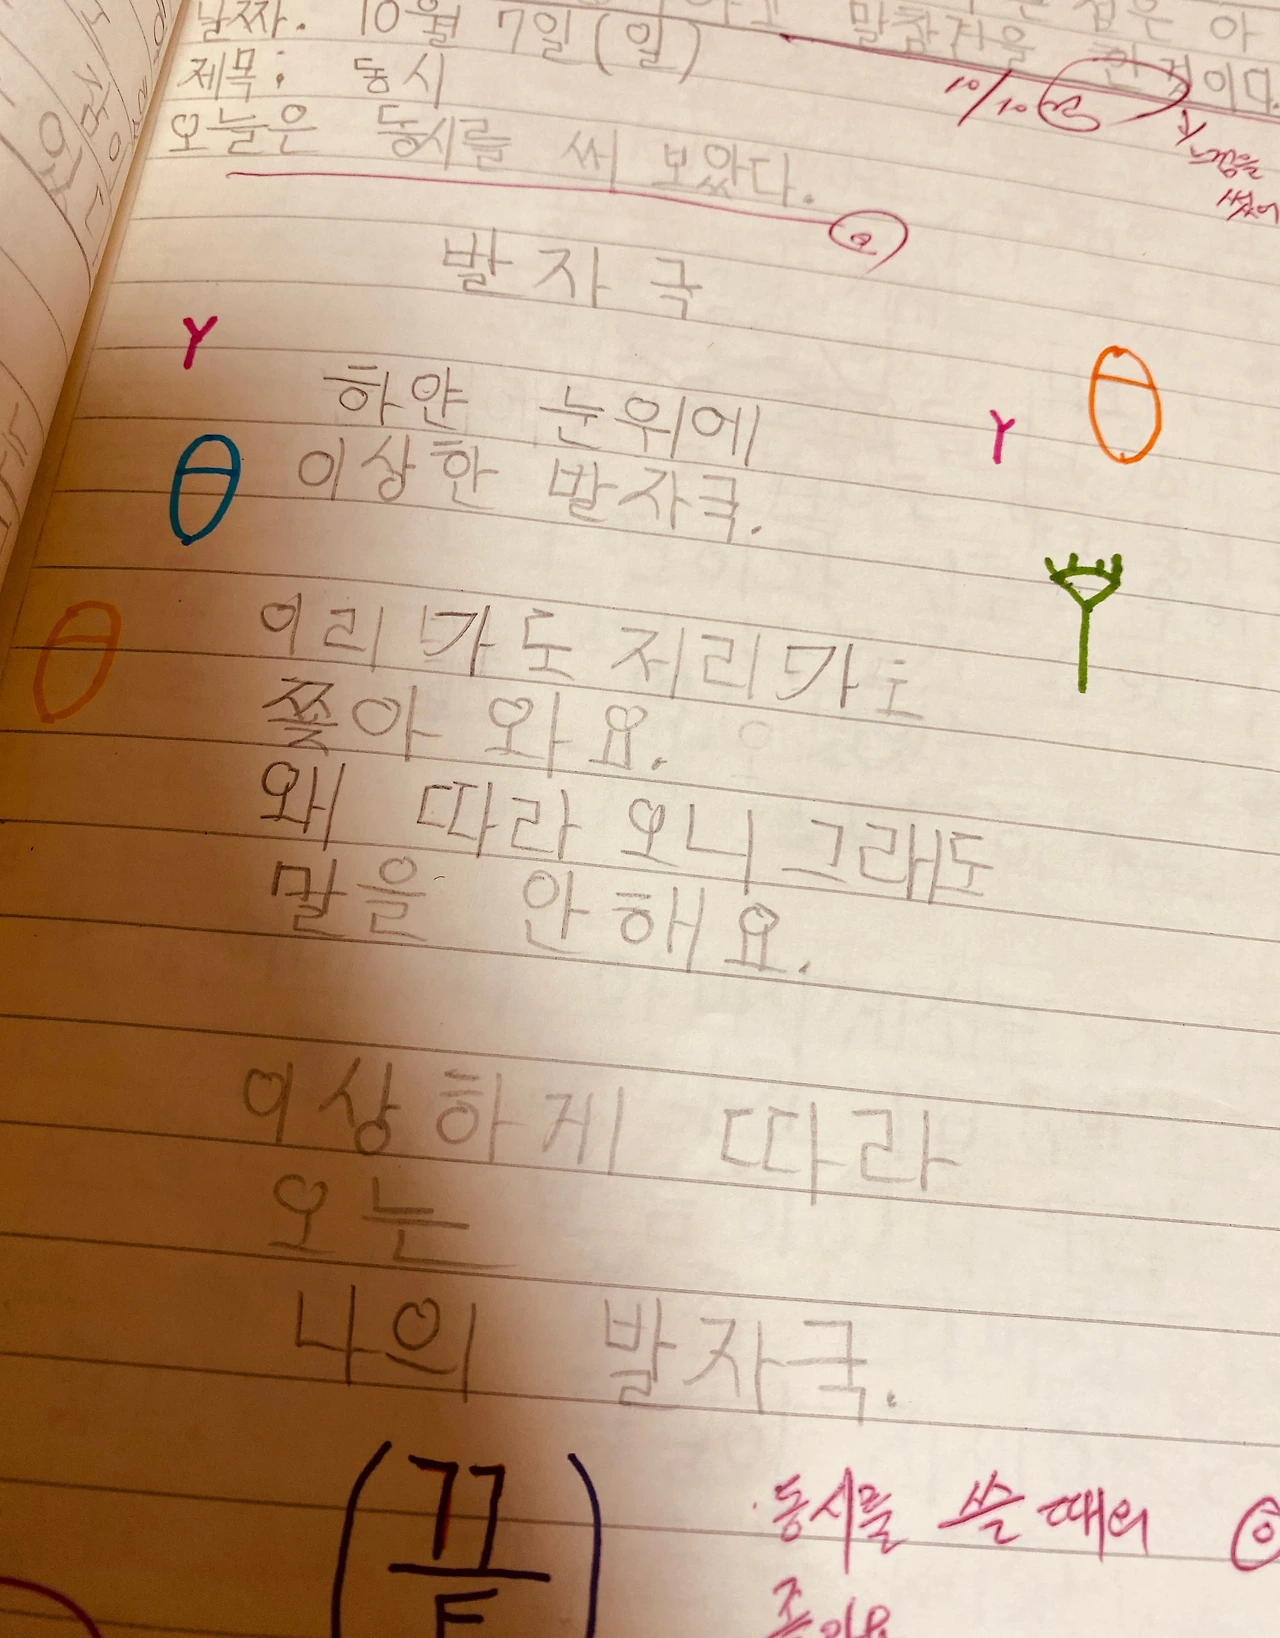 말참견을 한 것이다.
10/10
느낌을
썼어
날짜. 10월 7일(일)
제목: 동시
오늘은 동시를 써 보았다.
발자국
하얀 눈위에
이상한 발자국.
이리 가도 저리가도
쫓아 와요.
왜 따라 오니 그래도
말을 안 해요.
이상하게 따라
오는
나의 발자국.
(끄
동시를 쓸 때의